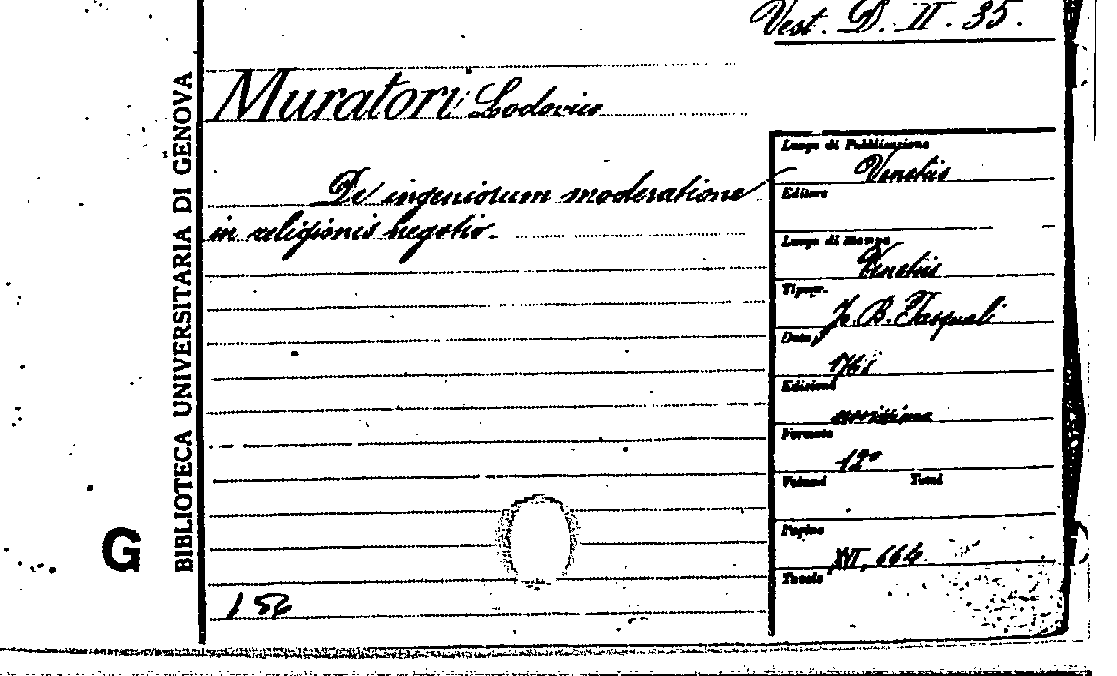 Vest. D. II. 35.
Muratori Lodovico
De ingeniorum moderatione
in religionis negotio.
BIBLIOTECA UNIVERSITARIA DI GENOVA
G
Luogo di Pubblicazione
Venetiis
Editore
Luogo di stampa
Venetiis
Tipogr.
Jo. B. Pasquali
Data
1761
Edizione
novissima
Formato
12º
Volumi Tomi
Pagine
XVI, 664
Tavole